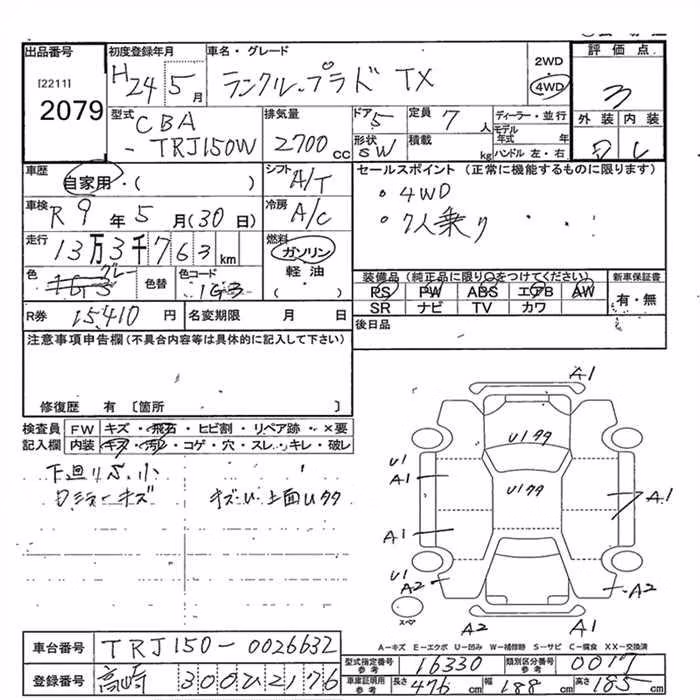 出品番号
[2211]
2079
初度登録年月
H24 5月
車名・グレード
ランクル プラド TX
2WD
4WD
評価点
3
外装 内装
型式
CBA
-TRJ150W
排気量
2700cc
ドア 5
形状 SW
定員 7人
積載 kg
ディーラー・並行
モデル年式 年
ハンドル 左・右
車歴
自家用・( )
シフト A/T
セールスポイント(正常に機能するものに限ります)
・4WD
・7人乗り
車検
R9年5月(30日)
冷房 A/C
走行
13万3千763km
燃料
ガソリン
軽油
( )
色 グレー
色替
色コード 1G3
装備品(純正品に限り○をつけてください)
新車保証書
PS PW ABS エアB AW
有・無
SR ナビ TV カワ
R券 15,410円
名変期限 月 日
後日品
注意事項申告欄(不具合内容等は具体的に記入して下さい)
修復歴 有〔箇所 〕
検査員
記入欄
FW キズ・飛石・ヒビ割・リペア跡・×要
内装 キズ・汚レ・コゲ・穴・スレ・キレ・破レ
下廻りサビ小
キズU 上面Uタタ
A1
Uタタ
U1
A1
Uタタ
A1
A1
U1
A2
A2
スペア
A2
A1
A-キズ E-エクボ U-凹み W-補修跡 S-サビ C-腐食 XX-交換済
車台番号 TRJ150-0026632
型式指定番号 参考 16330
類別区分番号 参考 0017
登録番号 高崎 300ひ2176
車庫証明用 参考 長さ 476cm 幅 188cm 高さ 185cm